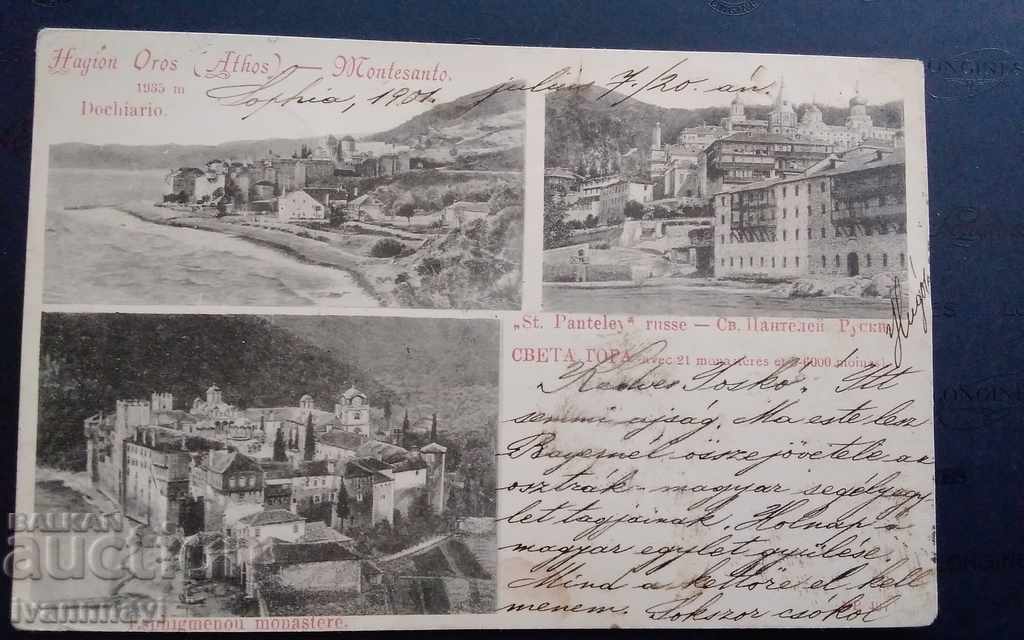 Hagion Oros (Athos) — Montesanto.
1935 m
Dochiario.
Sophia, 1901. julius 7/20. án.
LONGINES
„St. Panteley" russe — Св. Пантелей Руски
СВЕТА ГОРА avec 21 monasteres et moines
Sosko. Itt
semmi ujság. Ma este lesz
összejövetele az
osztrák-magyar segélyegy
let tagjainak. Holnap a
magyar egylet gyülése.
Mind a kettőre el kell
mennem. Sokszor csókol
Esphigmenou monastère.
BALKAN
auction
ivanmmavi